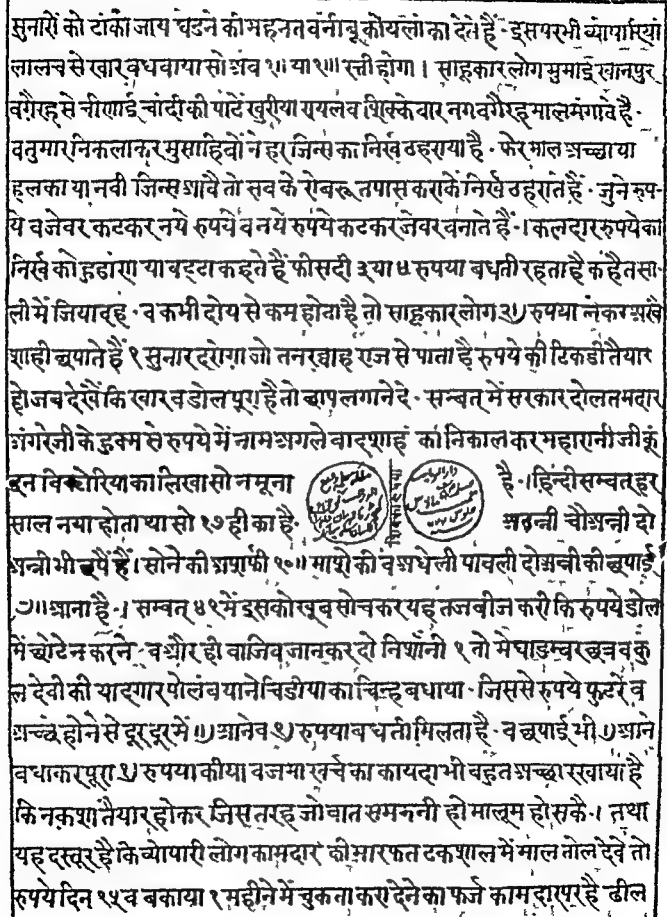 सुनारों को टांका जाय घडने की महनत वर्नाबू कोयलां का देते हैं - इस पर भी व्यापारियां
लालच से खार बधवाया सो अब १॥ या १॥ रत्ती होगा । साहूकार लोग मुमाई खानपुर
वगैरह से चीणाई चांदी की पाटें खुरीया रायलव शिक्केवार नग वगैरह माल मंगावे है -
व तुमार निकलाकर मुसाहिबों ने हर जिन्स का निर्ख ठहराया है - फेर माल अच्छा या
हलका या नवी जिन्स आवै तो सब के रोबरू तपास कराकें निर्ख ठहराते हैं - जुने रुप-
ये व जेवर कटकर नये रुपये व नये रुपये कटकर जेवर बनाते हैं - । कलदार रुपये का
निर्ख को हुडांणा या बट्टा कहते हैं फीसदी ३ या ४ रुपया बधती रहता है कहैतसा-
ली में जियादह - व कभी दोय से कम होता है तो साहूकार लोग २) रुपया लेकर अखै
शाही छपाते हैं १ सुनार दरोगा जो तनखाह राज से पाता है रुपये की टिकडी तैयार
हो जब देखें कि खार व डोल पूरा है तो छाप लगाने दे - सम्वत् में सरकार दोलतमदार
अंगरेजी के हुक्म से रुपये में नाम अगले बादशाह का निकाल कर महारानी जी कूं
इन विक्टोरिया का लिखा सो नमूना है - । हिंदी सम्वत् हर
शिक्का रुपया
साल नया होता था सो १७ ही का है - अठन्नी चौअन्नी दो
अन्नी भी छपैं हैं । सोने की अशर्फी १०॥ माशे की व अधेली पावली दो अन्नी की छपाई
७॥ आना है - । सम्वत् ४९ में इसको खूब सोचकर यह तजवीज करी कि रुपये डोल
में छोटे न करने - व और ही वाजिब जानकर दो निशांनी १ तो मेघाडम्बर छत्र व कु
ल देवी की यादगार पोलंब याने चिडीया का चिन्ह बधाया - जिससे रुपये फुटरे व
अच्छे होने से दूर दूर में ॥) आने व १) रुपया बधती मिलता है - व छपाई भी ।) आने
बधाकर पूरा १) रुपया कीया व जमा खर्च का कायदा भी बहुत अच्छा रखाया है
कि नकशा तैयार होकर जिस तरह जो बात समझनी हो मालूम हो सकै - । तथा
यह दस्तूर है कि व्योपारी लोग कामदार की मारफत टकशाल में माल तोल देवे तो
रुपये दिन १५ व बकाया १ महीने में चुकता करा देने का फर्ज कामदार पर है ढील